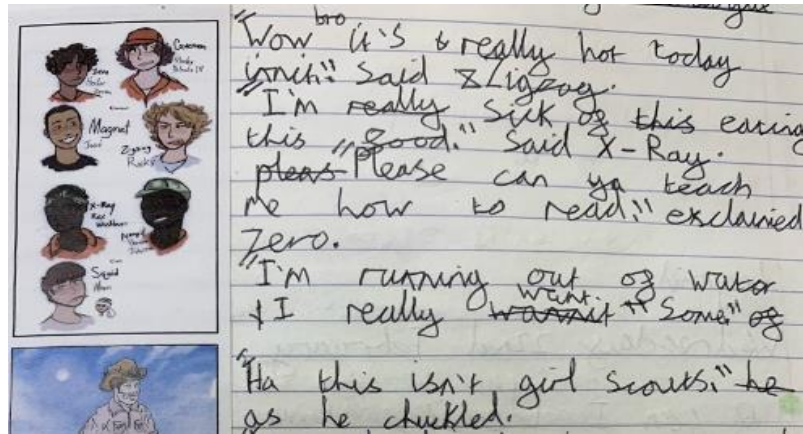 Zero
Caveman
Magnet
José
Zigzag
Ricky
X-Ray
Rex
Washburn
Armpit
Squid
Alan
bro
"Wow it's & really hot today
innit." Said Zigzag.
"I'm really Sick of this eating
this food." Said X-Ray.
pleas "Please can ya teach
me how to read," exclaimed
Zero.
"I'm running out of water
& I really wannit want "Some." of
"Ha this isn't girl scouts." he
as he chuckled.